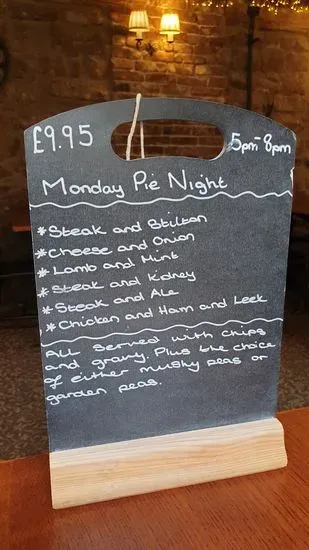 £9.95 5pm-8pm
Monday Pie Night
*Steak and Stilton
*Cheese and Onion
*Lamb and Mint
*Steak and Kidney
*Steak and Ale
*Chicken and Ham and Leek
All served with chips
and gravy. Plus the choice
of either mushy peas or
garden peas.